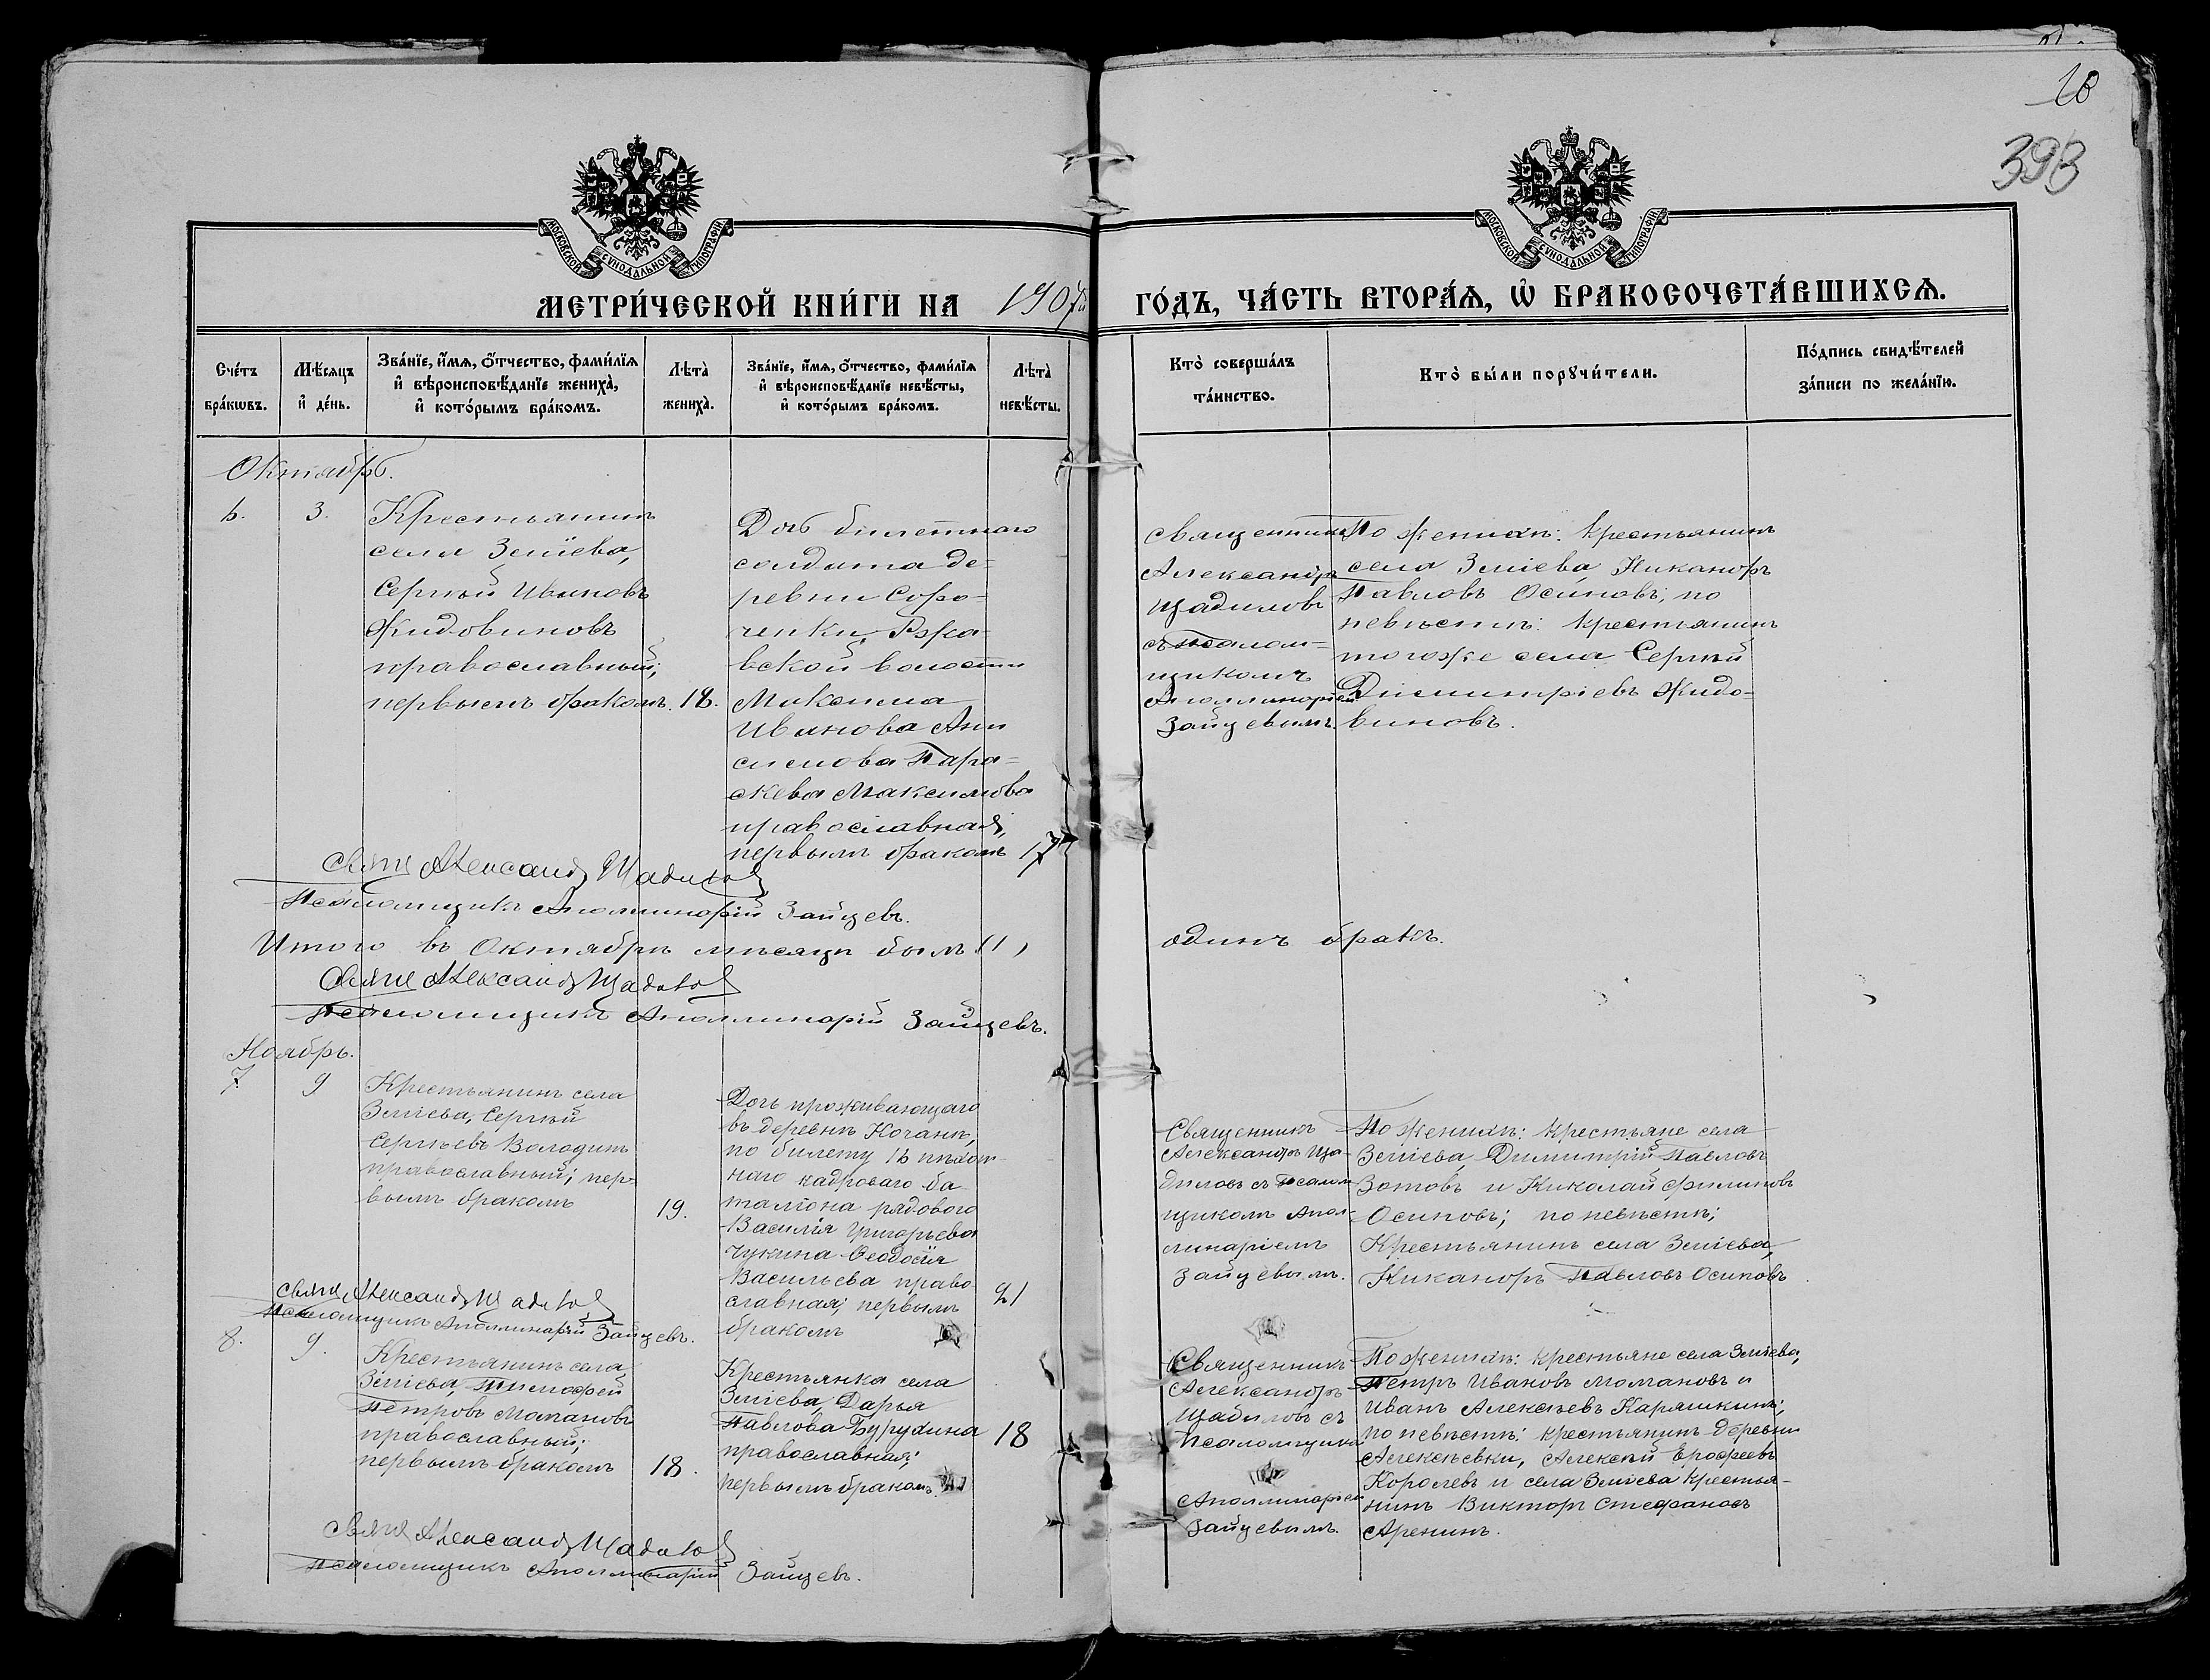 10
393
МОСКОВСКОЙ СѴНОДАЛЬНОЙ ТИПОГРАФІИ
МОСКОВСКОЙ СѴНОДАЛЬНОЙ ТИПОГРАФІИ
МЕТРИ́ЧЕСКОЙ КНИ́ГИ НА 1907й ГО́ДЪ, ЧА́СТЬ ВТОРА́Ѧ, Ѡ҆ БРАКОСОЧЕТА́ВШИХСѦ.
Сче́тъ
бра́кѡвъ.
Мѣ́сѧцъ
и҆ де́нь.
Зва́нїе, и҆́мѧ, ѻ҆́тчество, фами́лїѧ
и҆ вѣроисповѣ́данїе жениха̀,
и҆ кото́рымъ бра́комъ.
Лѣта̀
жениха̀.
Зва́нїе, и҆́мѧ, ѻ҆́тчество, фами́лїѧ
и҆ вѣроисповѣ́данїе невѣ́сты,
и҆ кото́рымъ бра́комъ.
Лѣта̀
невѣ́сты.
Кто̀ соверша́лъ
та́инство.
Кто̀ бы́ли порꙋчи́тели.
По́дпись свидѣ́телей
за́писи по жела́нїю.
Октябрь.
6.
3.
Крестьянинъ
села Зміева,
Сергѣй Ивановъ
Жидовиновъ
православный;
первымъ бракомъ.
18.
Дочь билетнаго
солдата де-
ревни Соро-
ченки, Ржа-
вской волости
Максима
Иванова Ани
симова Пара-
скева Максимова
православная,
первымъ бракомъ
17
Священникъ
Александръ
Щадиловъ
съ псалом-
щикомъ
Аполлинаріемъ
Зайцевымъ.
По женихѣ: крестьянинъ
села Зміева, Никаноръ
Павловъ Осиповъ; по
невѣстѣ: крестьянинъ
тогоже села Сергѣй
Димитріевъ Жидо-
виновъ.
Свящ Александръ Щадиловъ
Псаломщикъ Аполлинарій Зайцевъ.
Итого въ Октябрѣ мѣсяцѣ былъ (1) одинъ бракъ.
Свящ Александръ Щадиловъ
Псаломщикъ Аполлинарій Зайцевъ.
Ноябрь.
7.
9
Крестьянинъ села
Зміева, Сергѣй
Сергѣевъ Володинъ
православный; пер-
вымъ бракомъ
19.
Дочь проживающаго
въ деревнѣ Кочанѣ,
по билету 16 пѣхот-
наго кадроваго ба-
таліона рядового
Василія Григорьева
Чукина Ѳеодосія
Васильева право-
славная; первымъ
бракомъ
21
Священникъ
Александръ Ща-
диловъ съ Псалом-
щикомъ Апол-
линаріемъ
Зайцевымъ.
По женихѣ: крестьяне села
Зміева Димитрій Павловъ
Зотовъ и Николай Филиповъ
Осиповъ; по невѣстѣ;
Крестьянинъ села Зміева,
Никаноръ Павловъ Осиповъ.
Свящ Александръ Щадиловъ
Псаломщикъ Аполлинарій Зайцевъ.
8.
9.
Крестьянинъ села
Зміева, Тимофей
Петровъ Момановъ
православный;
первымъ бракомъ
18.
Крестьянка села
Зміева, Дарья
Павлова Бурухина
православная;
первымъ бракомъ.
18
Священникъ
Александръ
Щадиловъ съ
Псаломщикомъ
Аполлинаріемъ
Зайцевымъ.
По женихѣ: крестьяне села Зміева,
Петръ Ивановъ Момановъ и
Иванъ Алексѣевъ Карашкинъ;
по невѣстѣ: крестьянинъ деревни
Алексѣевки, Алексѣй Ерофеевъ
Королевъ и села Зміева крестья-
нинъ Викторъ Стефановъ
Аренинъ.
Свящ Александръ Щадиловъ
Псаломщикъ Аполлинарій Зайцевъ.